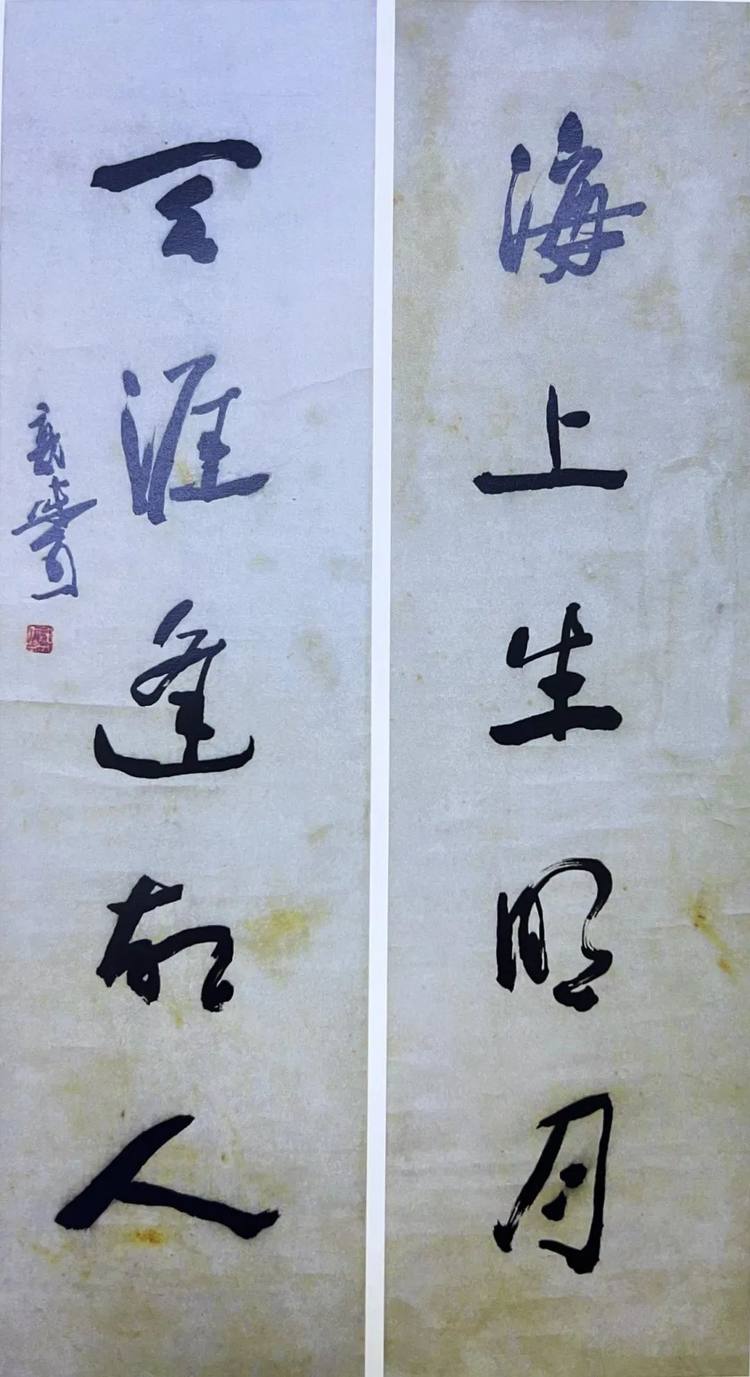 海上生明月
天涯逢故人